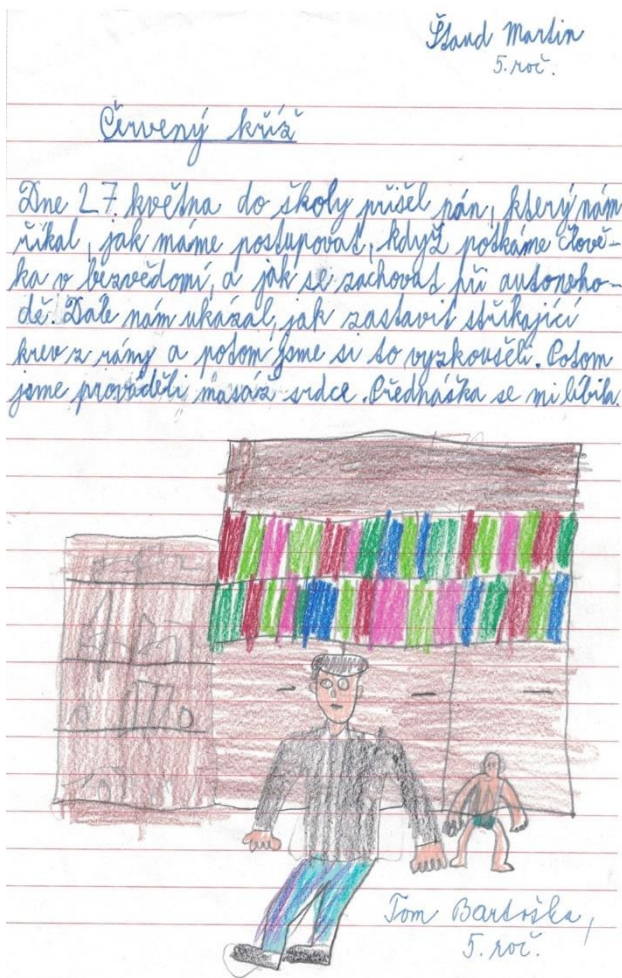 Štand Martin
5. roč.
Červený kříž
Dne 27. května do školy přišel pán, který nám
říkal, jak máme postupovat, když potkáme člově-
ka v bezvědomí, a jak se zachovat při autoneho-
dě. Dále nám ukázal, jak zastavit stříkající
krev z rány a potom jsme si to vyzkoušeli. Potom
jsme prováděli masáž srdce. Přednáška se mi líbila.
Tom Bartoška,
5. roč.